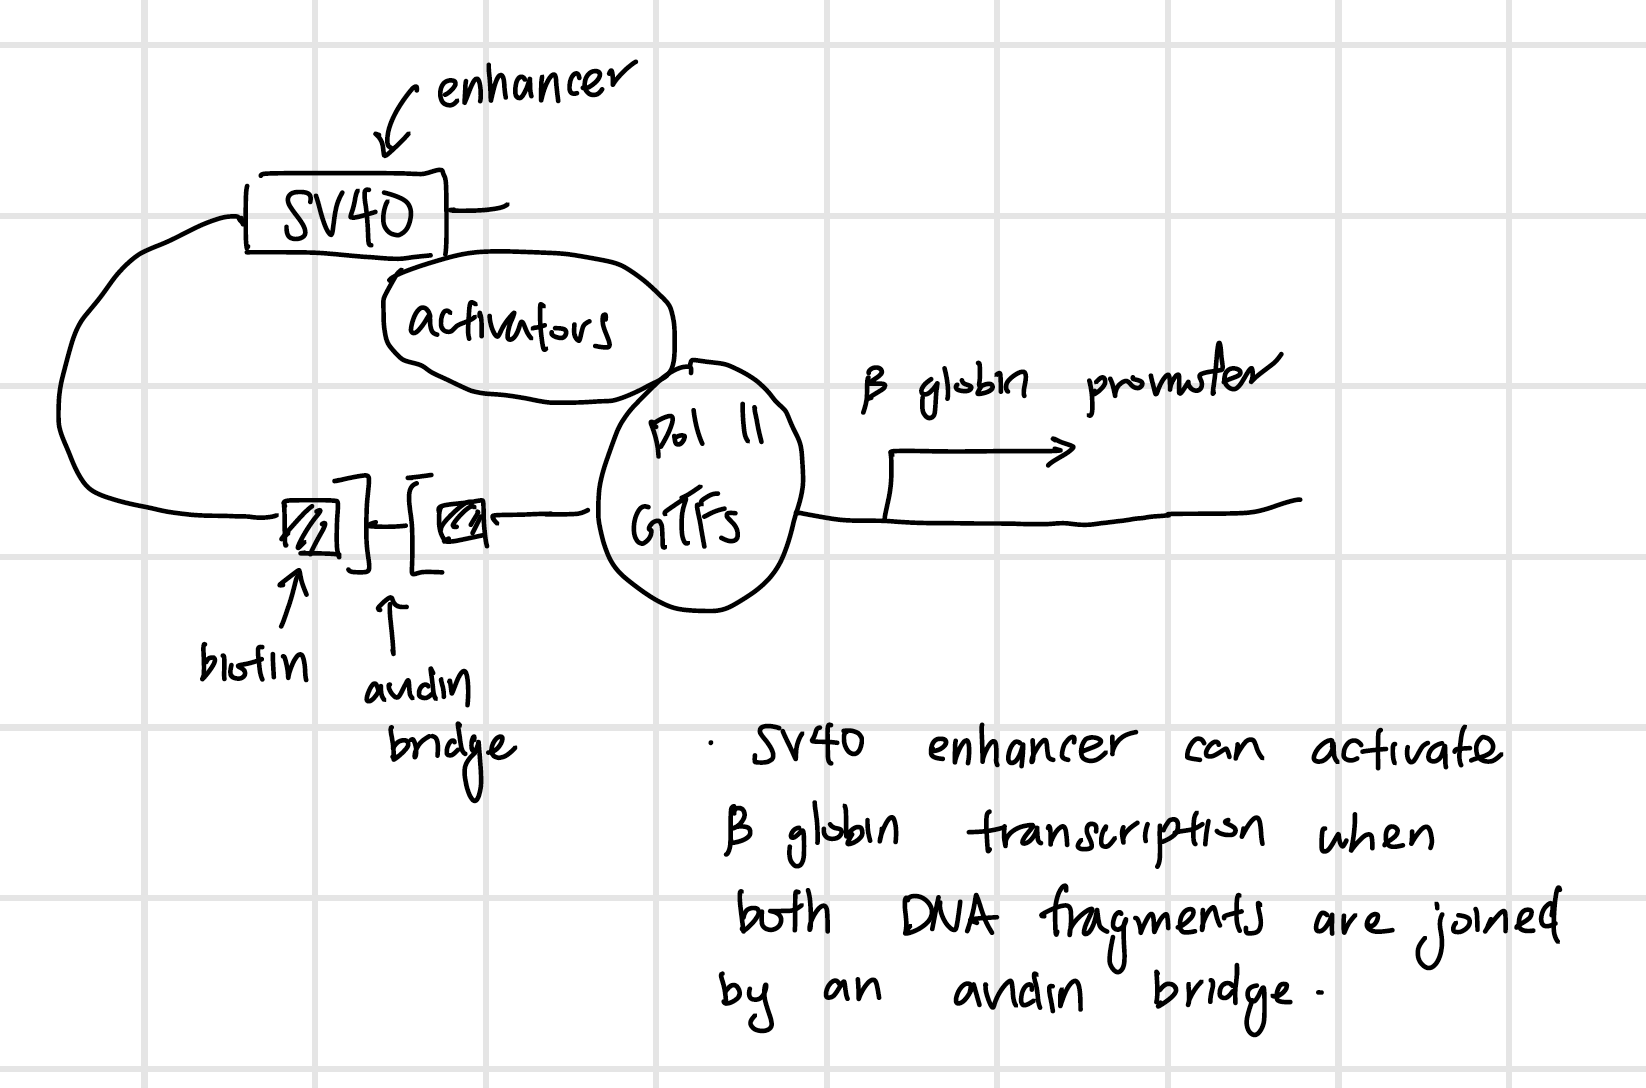 enhancer
SV40
activators
β globin promoter
Pol II
GTFs
biotin
avidin
bridge
· SV40 enhancer can activate
β globin transcription when
both DNA fragments are joined
by an avidin bridge.